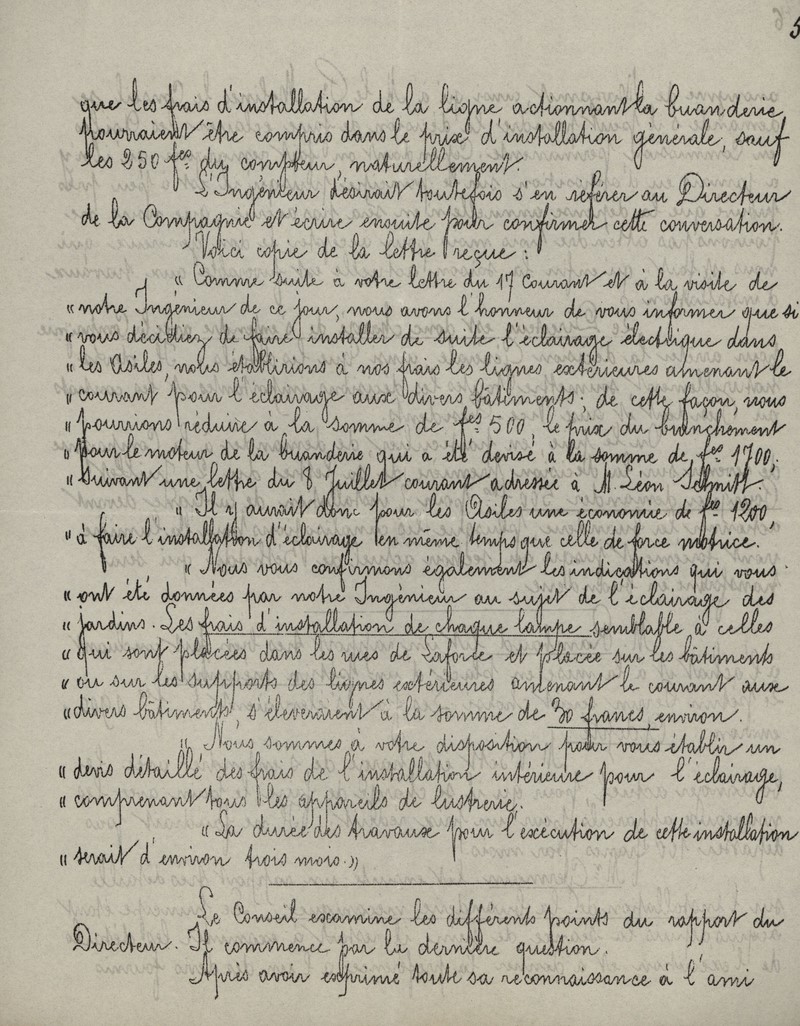 5
que les frais d'installation de la ligne actionnant la buanderie
pourraient être compris dans le prix d'installation générale, sauf
les 250 fcs du compteur, naturellement.
L'Ingénieur désirait toutefois s'en référer au Directeur
de la Compagnie et écrire ensuite pour confirmer cette conversation.
Voici copie de la lettre reçue :
" Comme suite à votre lettre du 17 Courant et à la visite de
" notre Ingénieur de ce jour, nous avons l'honneur de vous informer que si
" vous décidiez de faire installer de suite l'éclairage électrique dans
" les Asiles, nous établirions à nos frais les lignes extérieures amenant le
" courant pour l'éclairage aux divers bâtiments ; de cette façon, nous
" pourrions réduire à la somme de fcs 500, le prix du branchement
" pour le moteur de la buanderie qui a été devisé à la somme de fcs 1700,
" suivant une lettre du 8 Juillet courant adressée à M. Léon Schmitt.
" Il y aurait donc pour les Asiles une économie de fcs 1200,
" à faire l'installation d'éclairage en même temps que celle de force motrice.
" Nous vous confirmons également les indications qui vous
" ont été données par notre Ingénieur au sujet de l'éclairage des
" jardins. Les frais d'installation de chaque lampe semblable à celles
" qui sont placées dans les rues de Laforce et placée sur les bâtiments
" ou sur les supports des lignes extérieures amenant le courant aux
" divers bâtiments, s'élèveraient à la somme de 30 francs, environ.
" Nous sommes à votre disposition pour vous établir un
" devis détaillé des frais de l'installation intérieure pour l'éclairage,
" comprenant tous les appareils de lustrerie.
" La durée des travaux pour l'exécution de cette installation
" serait d'environ trois mois. »
Le Conseil examine les différents points du rapport du
Directeur. Il commence par la dernière question.
Après avoir exprimé toute sa reconnaissance à l'ami